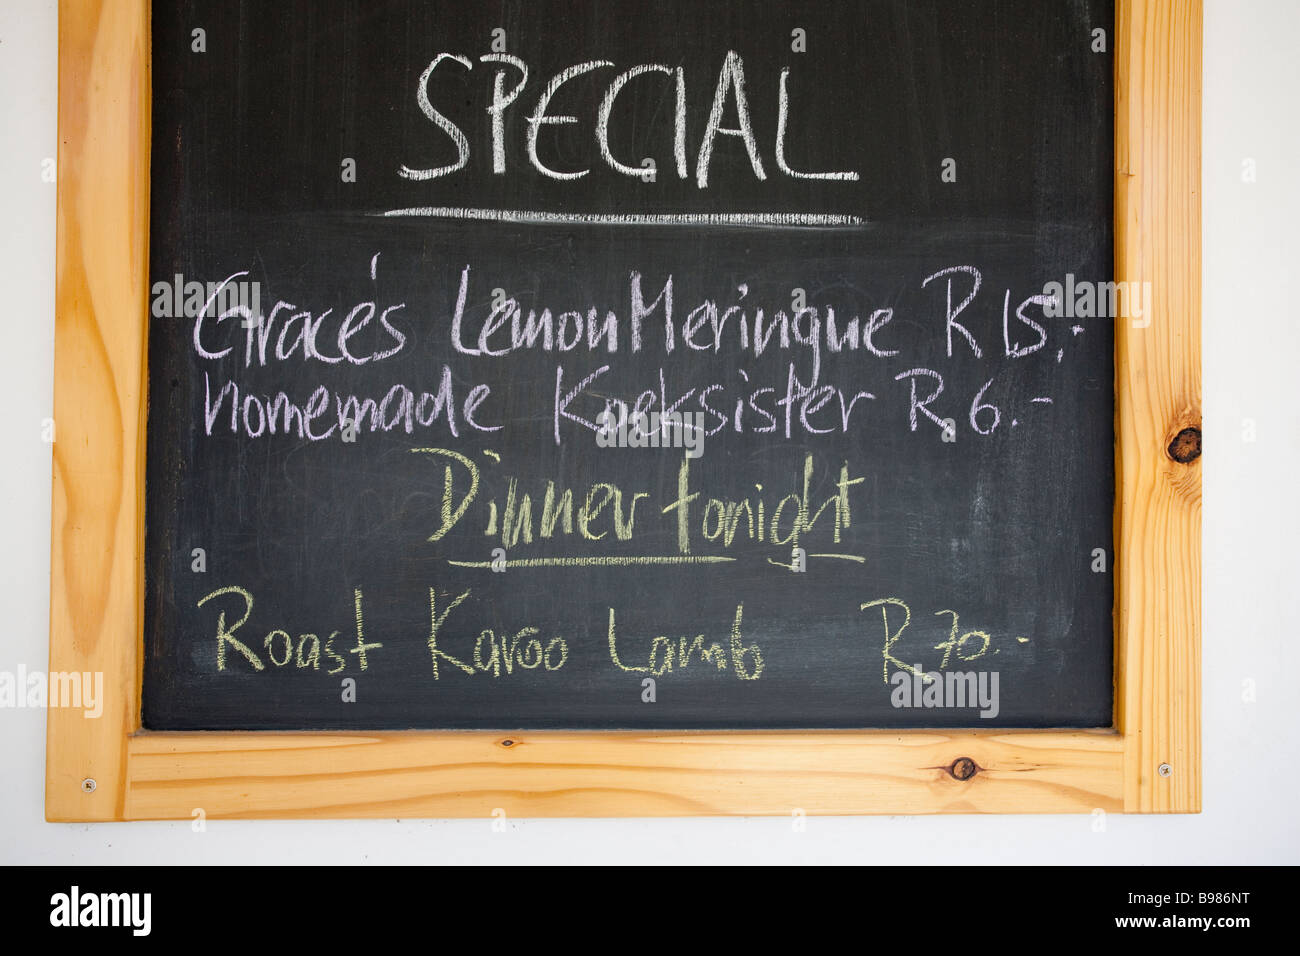 SPECIAL
Grace's Lemon Meringue R15.-
homemade Koeksister R6.-
Dinner tonight
Roast Karoo Lamb R70.-
alamy
Image ID: B986NT
www.alamy.com